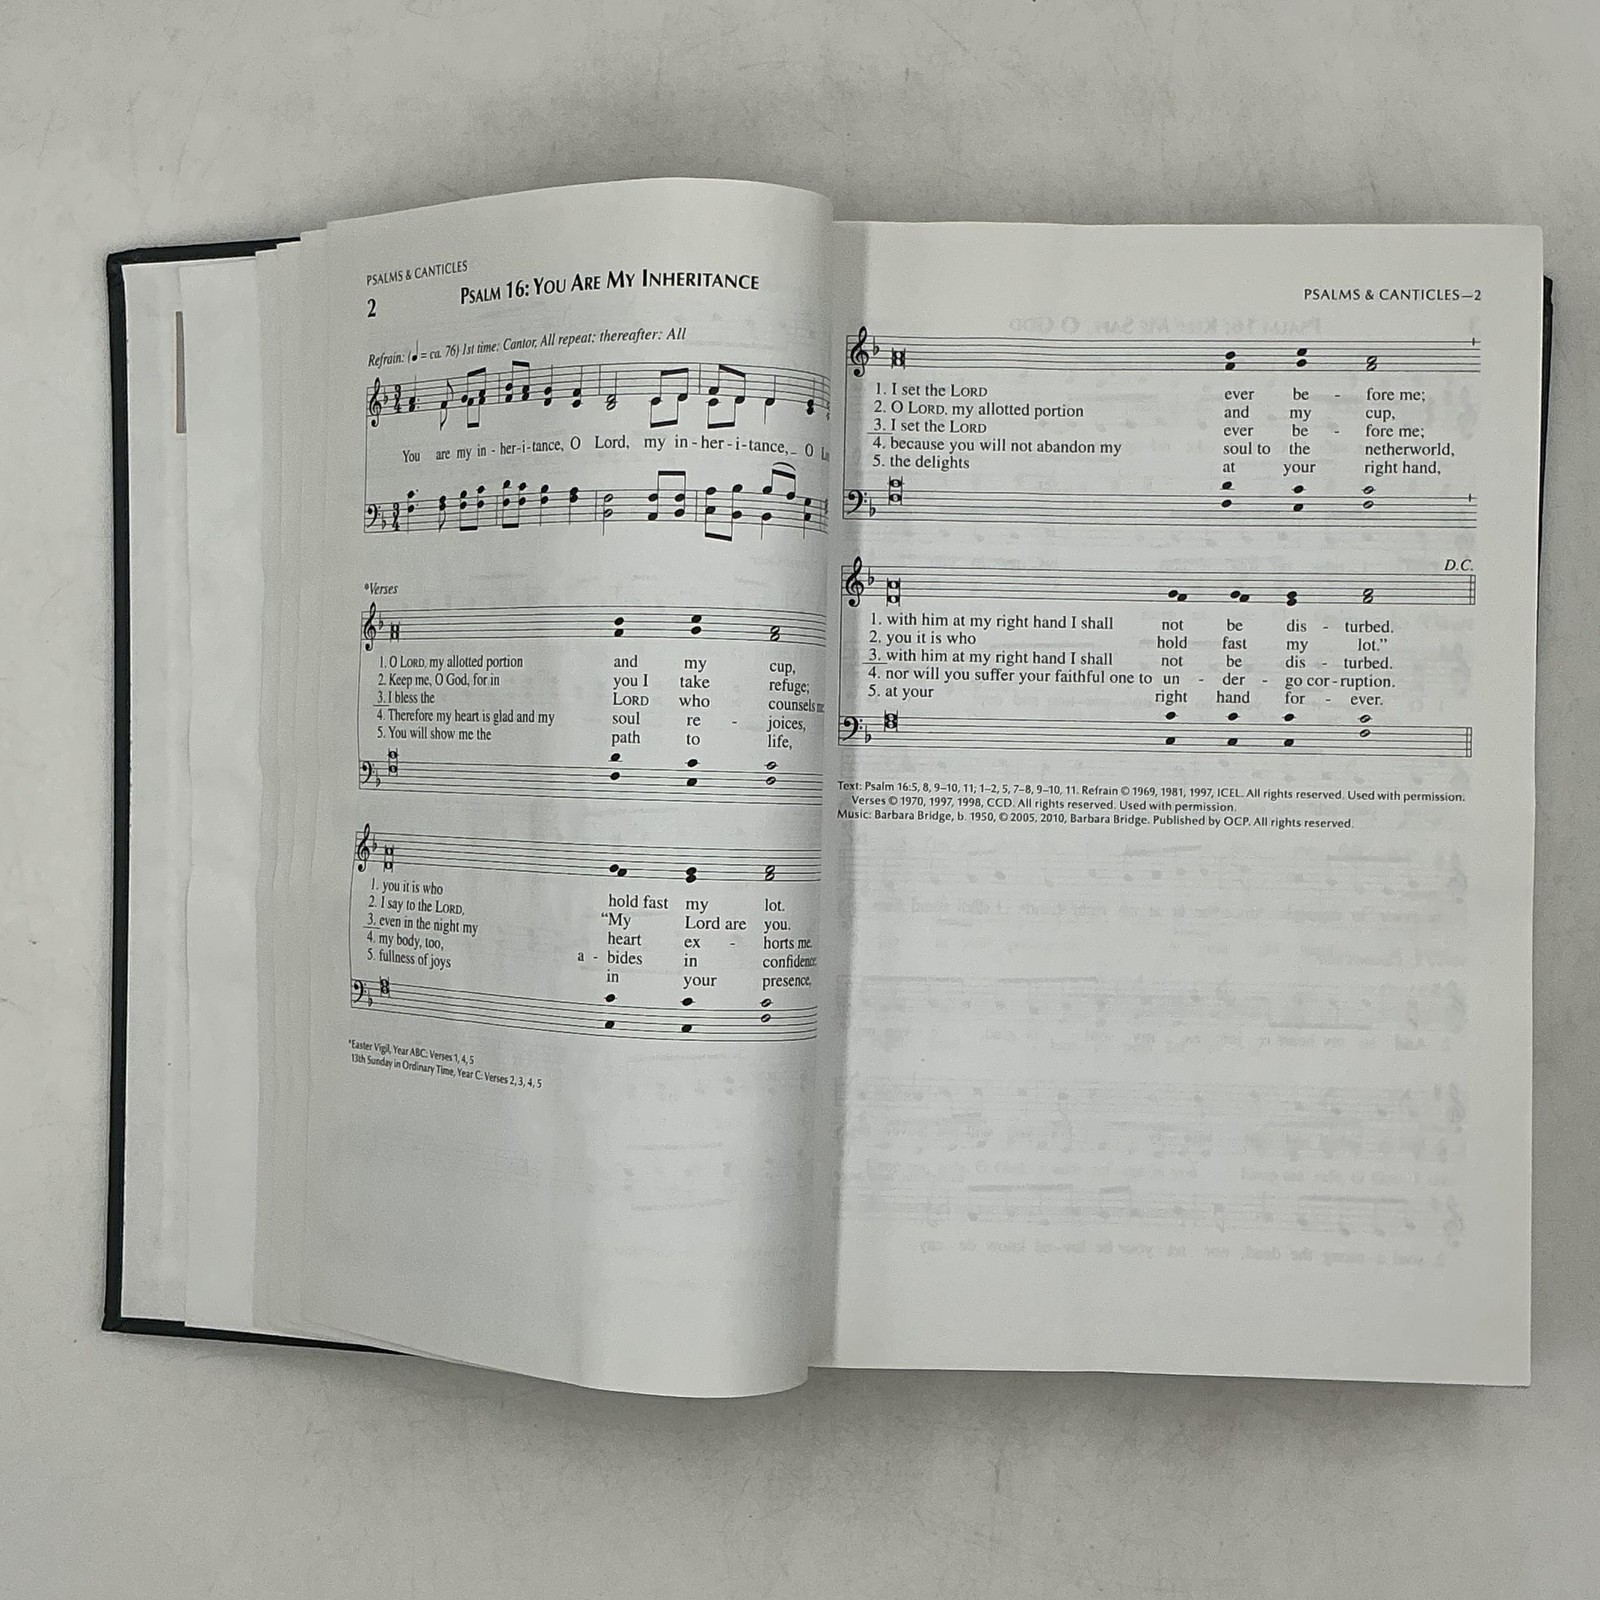 PSALMS & CANTICLES
2 PSALM 16: YOU ARE MY INHERITANCE
Refrain: (♩ = ca. 76) 1st time: Cantor, All repeat; thereafter: All
3
4
You are my in - her - i - tance, O Lord, my in - her - i - tance, _ O
3
4
*Verses
1. O LORD, my allotted portion and my cup,
2. Keep me, O God, for in you I take refuge;
3. I bless the LORD who counsels me
4. Therefore my heart is glad and my soul re - joices,
5. You will show me the path to life,
1. you it is who hold fast my lot.
2. I say to the LORD, “My Lord are you.
3. even in the night my heart ex - horts me.
4. my body, too, a - bides in confidence
5. fullness of joys in your presence,
*Easter Vigil, Year ABC: Verses 1, 4, 5
13th Sunday in Ordinary Time, Year C: Verses 2, 3, 4, 5
PSALMS & CANTICLES—2
1. I set the LORD ever be - fore me;
2. O LORD, my allotted portion and my cup,
3. I set the LORD ever be - fore me;
4. because you will not abandon my soul to the netherworld,
5. the delights at your right hand,
D.C.
1. with him at my right hand I shall not be dis - turbed.
2. you it is who hold fast my lot.”
3. with him at my right hand I shall not be dis - turbed.
4. nor will you suffer your faithful one to un - der - go cor - ruption.
5. at your right hand for - ever.
Text: Psalm 16:5, 8, 9–10, 11; 1–2, 5, 7–8, 9–10, 11. Refrain © 1969, 1981, 1997, ICEL. All rights reserved. Used with permission.
Verses © 1970, 1997, 1998, CCD. All rights reserved. Used with permission.
Music: Barbara Bridge, b. 1950, © 2005, 2010, Barbara Bridge. Published by OCP. All rights reserved.